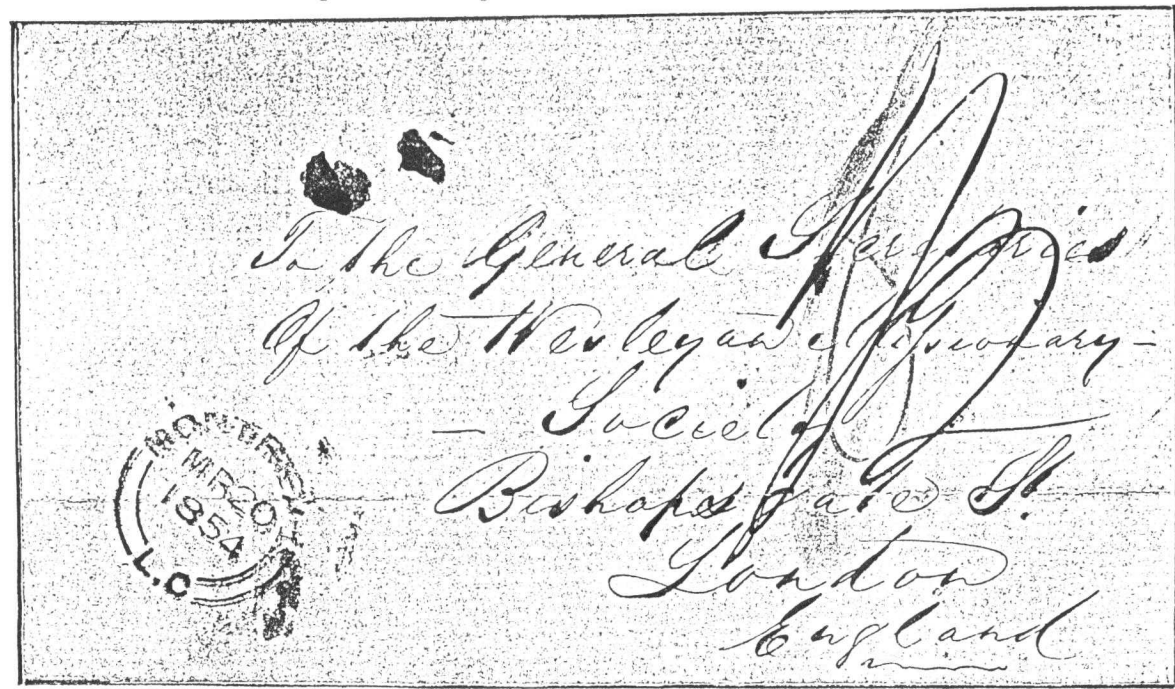 To the General Secretaries
Of the Wesleyan Missionary -
- Society -
Bishopsgate St.
London
England
MONTREAL
MR 20
1854
L.C